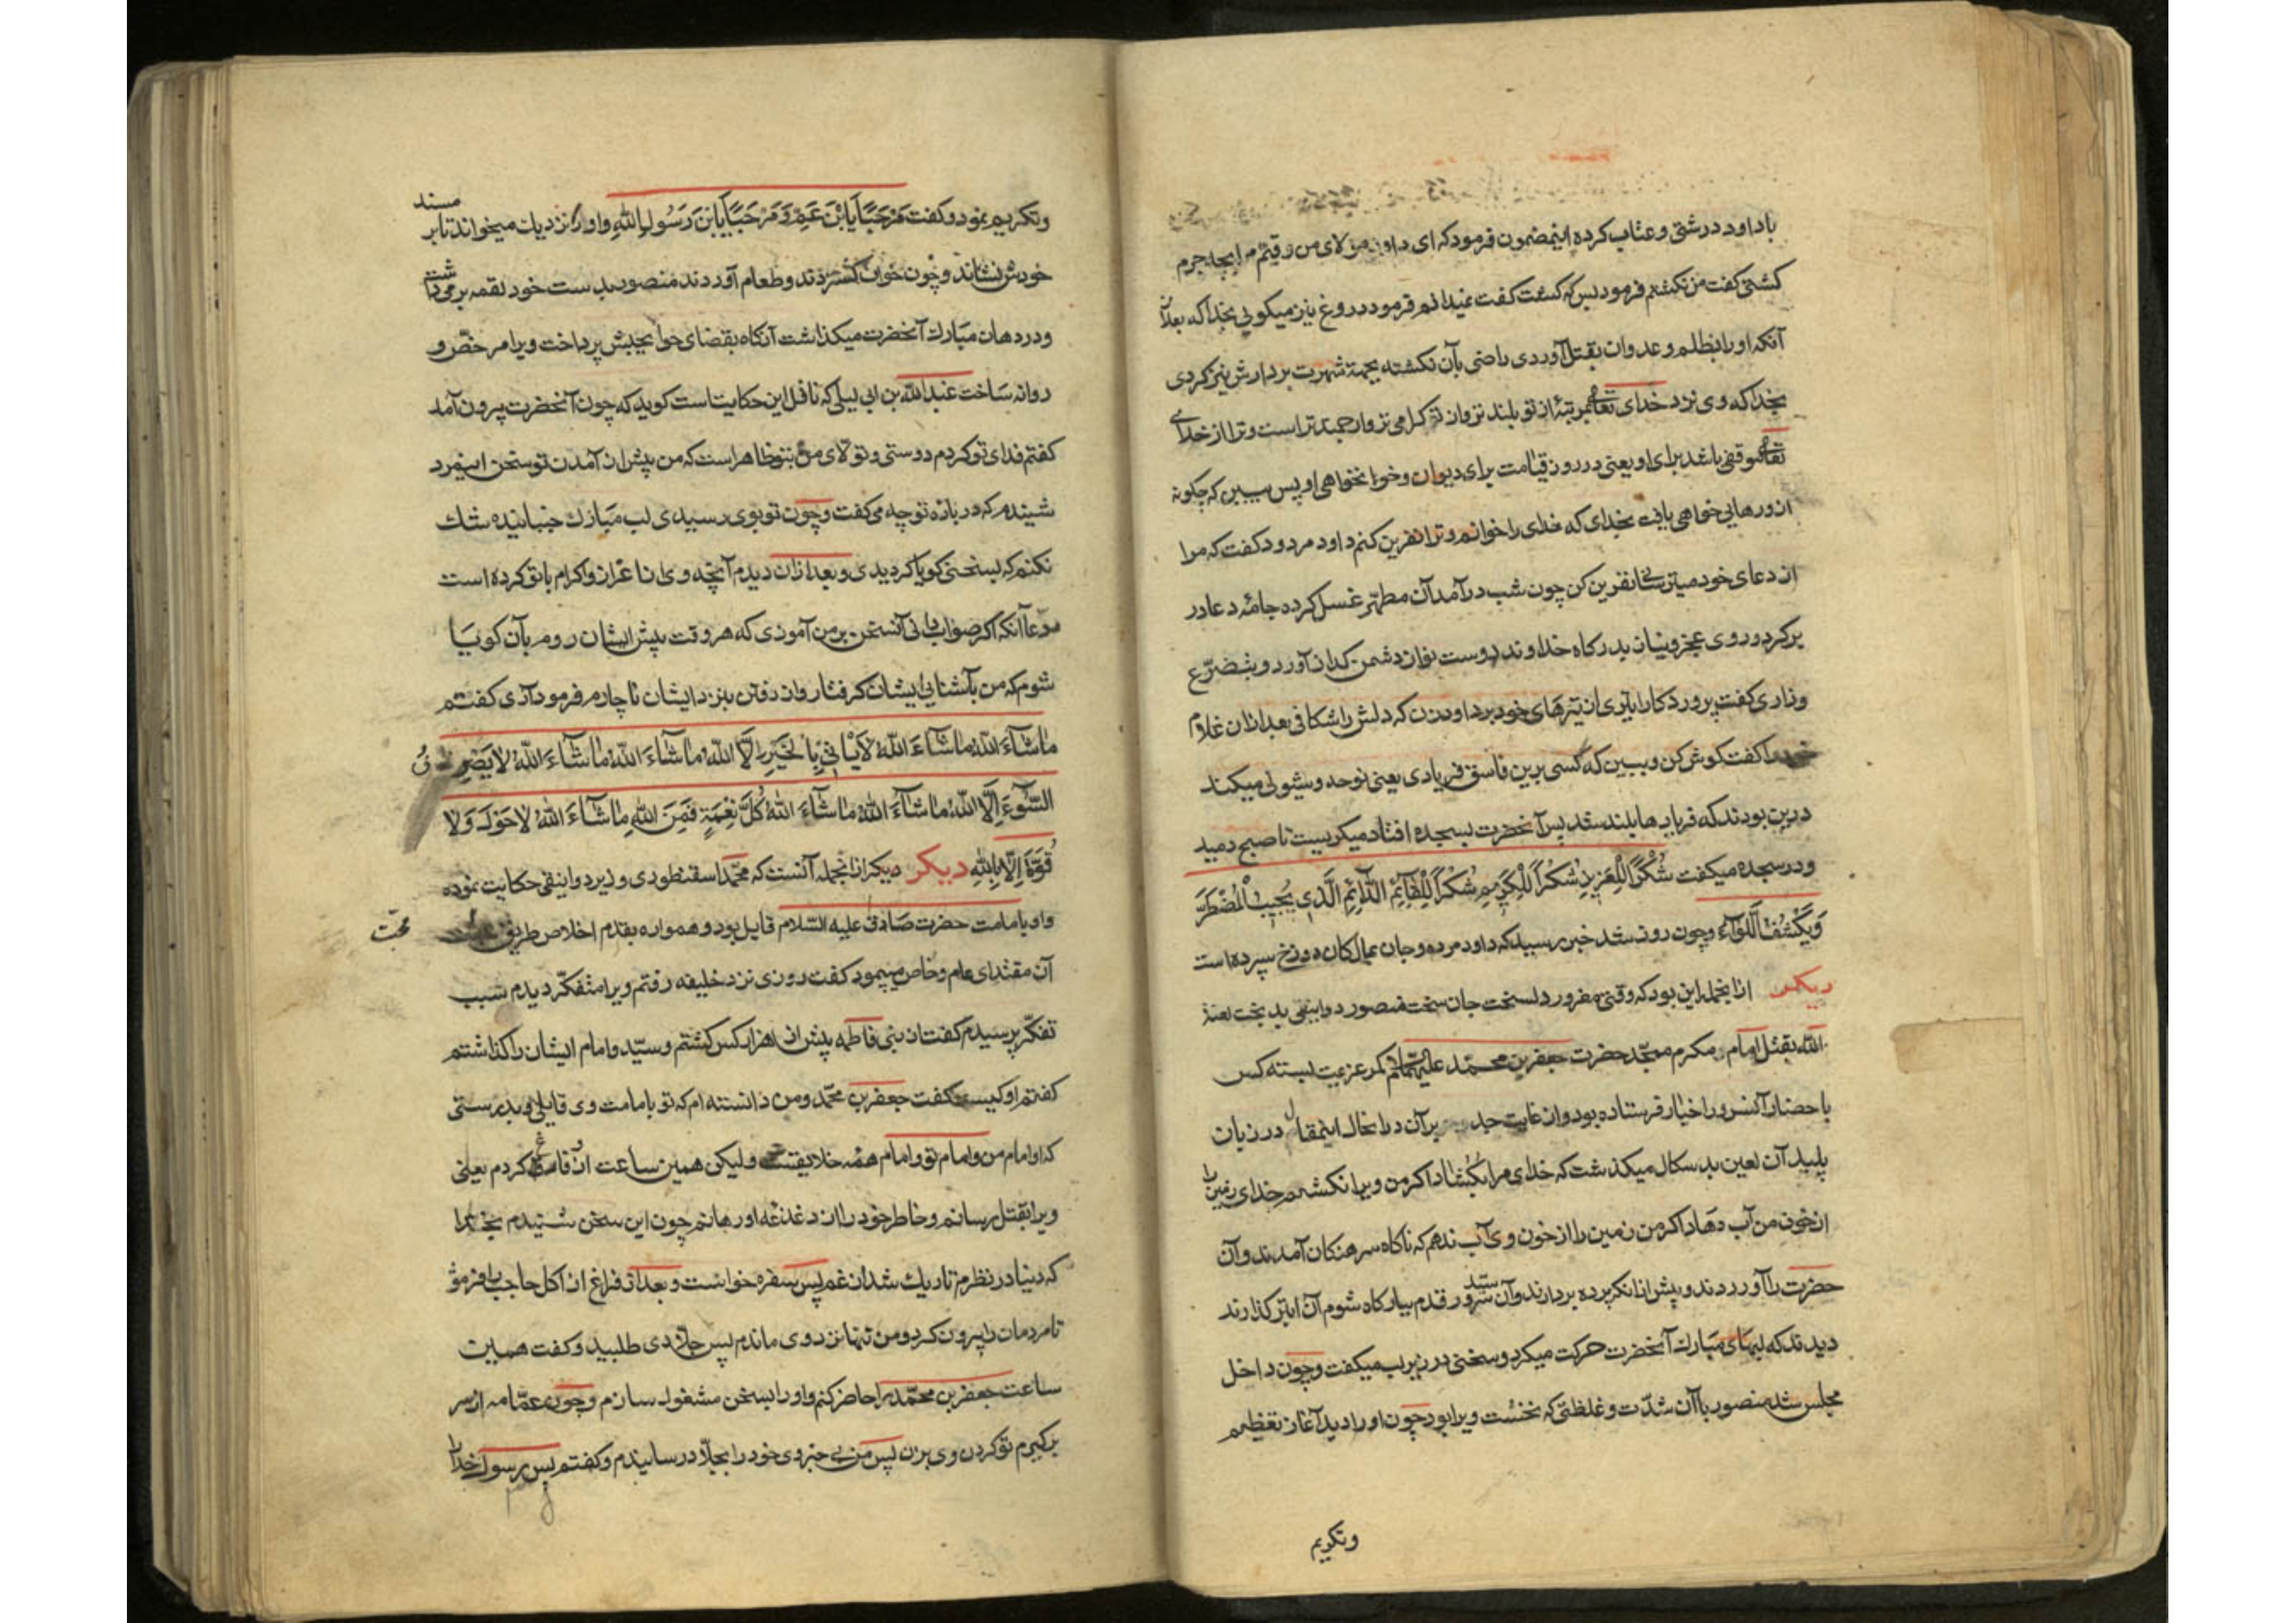 باداود درشتی و عتاب کرده اینمضمون فرمود که ای داود مولای من
کشتی گفت من نکشتم فرمود پس که کشت گفت نمیدانم فرمود دروغ نیز میکویی بخدا که بعد از
آنکه اورا بظلم و عدوان بقتل آوردی راضی بآن نکشته بجهة شهرت بر دارش نیز کردی
بخدا که وی نزد خدای تعالی بمرتبهٔ از تو بلند تر و از تو کرامی تر و ارجمند تر است و ترا از خدای
تعالی موقفی باشد برای او یعنی در روز قیامت برای دیوان و خواهی او پس ببین که چکونه
ازو رهایی خواهی یافت بخدای که خدای را خوانم و ترا نفرین کنم داود مردود کفت که مرا
از دعای خود میترسانی نفرین کن چون شب درآمد آن مطهر غسل کرده جامهٔ دعا در
بر کرد و روی عجز و نیاز بدرکاه خداوند دوست نواز دشمن کداز آورد و بتضرّع
و زاری کفت پروردکارا تیری از تیرهای خود بر داود زن که دلش را شکافی بعد ازان غلام
خود را کفت کوش کن و ببین که کسی برین فاسق فریادی یعنی نوحه و شیونی میکند
درین بودند که فریادها بلند شد پس آنحضرت بسجده افتاد میکریست تا صبح دمید
و در سجده میکفت شُکْرًا لِلْعَزِیزِ شُکْرًا لِلْکَرِیمِ شُکْرًا لِلْقَآئِمِ الدَّآئِمِ الَّذِی یُجِیبُ الْمُضْطَرَّ
وَیَکْشِفُ اللَّوْآءَ وچون روز شد خبر رسید که داود مرده و جان بمالکان دوزخ سپرده است
دیکر ازانجمله این بود که وقتی مغرور دلسخت جان سخت منصور دوانیقی بدبخت لعنة
الله بقتل امام مکرم ممجّد حضرت جعفر بن محمّد علیهماالسلام کمر عزیمت بسته کس
باحضار آنسرور اخیار فرستاده بود و از غایت جد بر آن در انحال اینمقال در زبان
پلید آن لعین بد سکال میکذشت که خدای مرا بکشاد اکر من ویرا نکشم خدای زمین را
از خون من آب دهاد اکر من زمین را از خون وی آب ندهم که ناکاه سرهنکان آمدند و آن
حضرت را آوردند و پیش ازانکه پرده بردارند و آن سید سرور قدم ببارکاه شوم آن ابتر کذارند
دیدند که لبهای مبارک آنحضرت حرکت میکرد و سخنی در زیر لب میکفت وچون داخل
مجلس شد منصور با آن شدّت و غلظتی که نخست ویرا بود چون او را دید آغاز تعظیم
وتکریم
وتکریم نمود و کفت مَرْحَبًا یَا ابْنَ عَمِّ وَ مَرْحَبًا یَا ابْنَ رَسُولِ اللهِ و او را نزدیک میخواند تا بر مسند
خودش نشاند و چون خوان کستردند و طعام آوردند منصور بدست خود لقمه بر میداشت
و در دهان مبارک آنحضرت میکذاشت آنکاه بقضای حوایجش پرداخت ویرا مرخّص و
روانه ساخت عبدالله بن ابی لیلی که ناقل این حکایتست کوید که چون آنحضرت بیرون آمد
کفتم فدای تو کردم دوستی و تولای من بتو ظاهر است که من پیش از آمدن تو سخن اینمرد
شنیدم که در باره تو چه می کفت وچون تو بوی رسیدی لب مبارک جنبانیده شک
نکنم که بسخنی کویا کردیدی و بعد ازان دیدم آنچه وی از اعزاز و اکرام با تو کرده است
مدعا آنکه اکر صواب دانی آنسخن بمن آموزی که هر وقت پیش ایشان روم بآن کویا
شوم که من بآشنایی ایشان کرفتار و از رفتن بنزد ایشان ناچارم فرمود آری کفتم
مَاشَآءَ اللهُ مَاشَآءَ اللهُ لَا یَأْتِی بِالْخَیْرِ اِلَّا اللهُ مَاشَآءَ اللهُ مَاشَآءَ اللهُ لَا یَصْرِفُ
السُّوءَ اِلَّا اللهُ مَاشَآءَ اللهُ مَاشَآءَ اللهُ کُلُّ نِعْمَةٍ فَمِنَ اللهِ مَاشَآءَ اللهُ لَا حَوْلَ وَلَا
قُوَّةَ اِلَّا بِاللهِ دیکر دیکر ازانجمله آنست که محمّد اسقنطوری وزیر دوانیقی حکایت نموده
و او بامامت حضرت صادق علیه السّلام قایل بود و همواره بقدم اخلاص طریق محبت
آن مقتدای عام و خاص میپیمود کفت روزی نزد خلیفه رفتم ویرا متفکّر دیدم سبب
تفکّر پرسیدم کفت از بنی فاطمه پیش از هزار کس کشتم و سیّد و امام ایشان را کذاشتم
کفتم او کیست کفت جعفر بن محمّد و من دانسته ام که تو بامامت وی قایلی و بدرستی
که او امام من و امام تو و امام همه خلایقست ولیکن همین ساعت ازو فارغ کردم یعنی
ویرا بقتل رسانم و خاطر خود را از دغدغه او رهانم چون این سخن شنیدم بخدا
که دنیا در نظرم تاریک شد از غم پس سفره خواست و بعد از فراغ از اکل حاجب را فرمود
تا مردمان را بیرون کرد و من تنها نزد وی ماندم پس جلّادی طلبید و کفت همین
ساعت جعفر بن محمّد را حاضر کنم و او را بسخن مشغول سازم وچون عمّامه از سر
برکیرم تو کردن وی بزن پس من بی خبر وی خود را بجلّاد رسانیدم و کفتم پس رسول خدا را